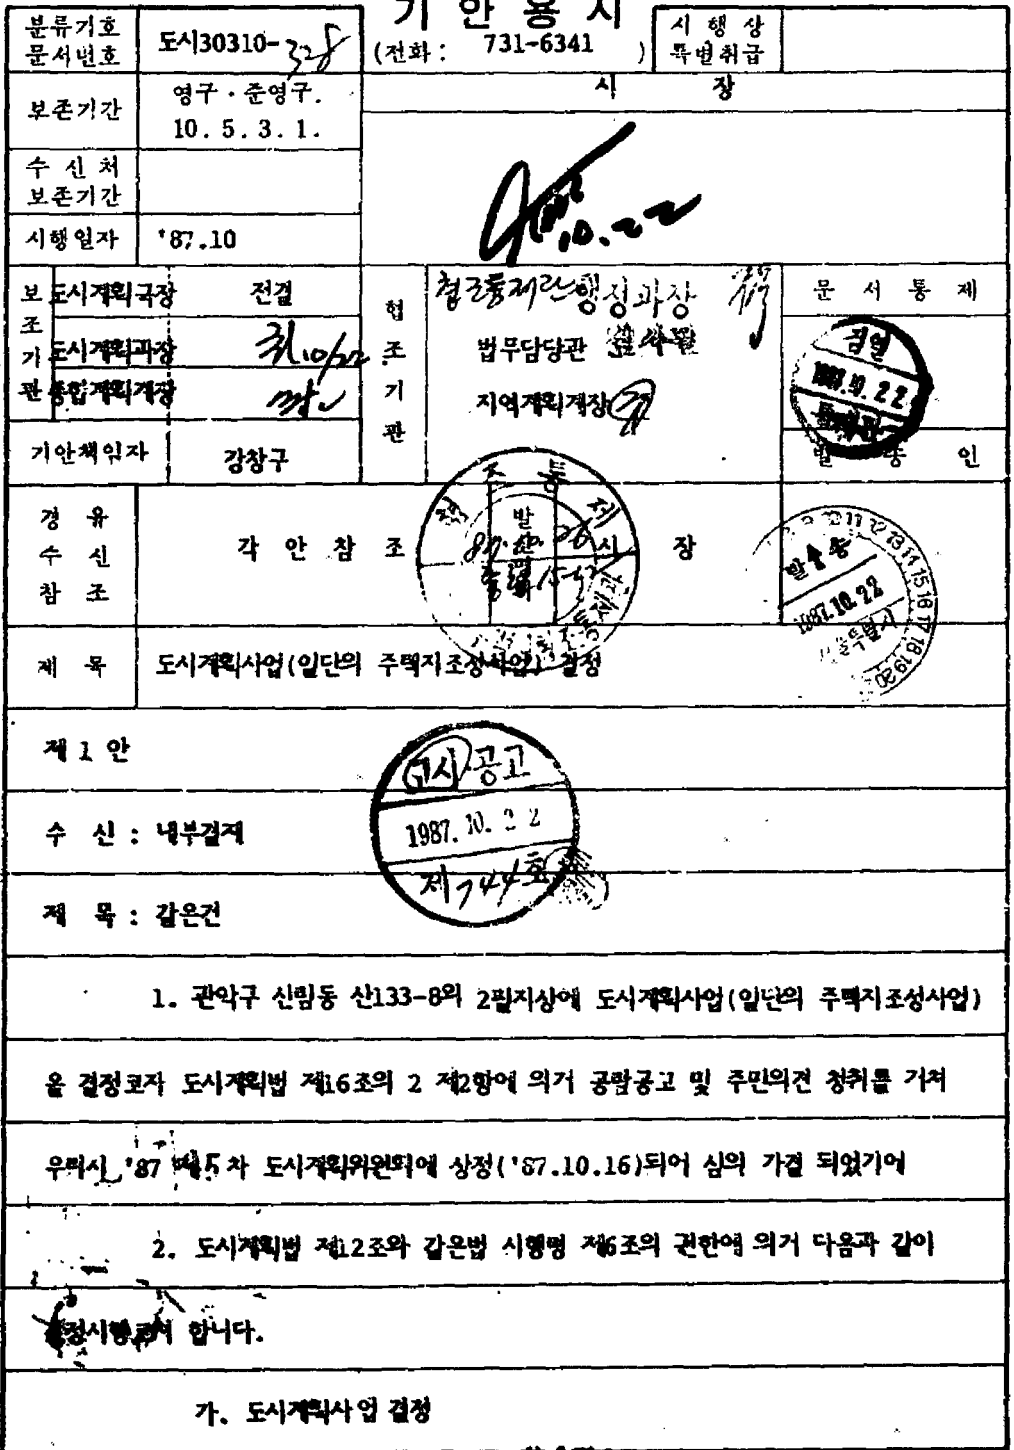 기 안 용 지
분류기호
문서번호
도시30310-328
(전화 : 731-6341 )
시 행 상
특별취급
보존기간
영구 · 준영구.
10. 5. 3. 1.
시 장
수 신 처
보존기간
10.22
시행일자
'87.10
보조기관
도시계획국장 전결
도시계획과장 10/22
종합계획계장
기안책임자
강창구
협조기관
행정과장
법무담당관
지역계획계장
문 서 통 제
검열
1987.10.22
통제관
발 송 인
경 유
수 신
참 조
각 안 참 조
시 장
발송
1987.10.22
서울특별시
제 목
도시계획사업(일단의 주택지조성사업) 결정
제 1 안
고시 공고
1987. 10. 22
제744호
수 신 : 내부결재
제 목 : 같은건
1. 관악구 신림동 산133-8외 2필지상에 도시계획사업(일단의 주택지조성사업)
을 결정코자 도시계획법 제16조의 2 제2항에 의거 공람공고 및 주민의견 청취를 거쳐
우리시 '87 제5차 도시계획위원회에 상정('87.10.16)되어 심의 가결 되었기에
2. 도시계획법 제12조와 같은법 시행령 제6조의 권한에 의거 다음과 같이
결정시행코저 합니다.
가. 도시계획사업 결정